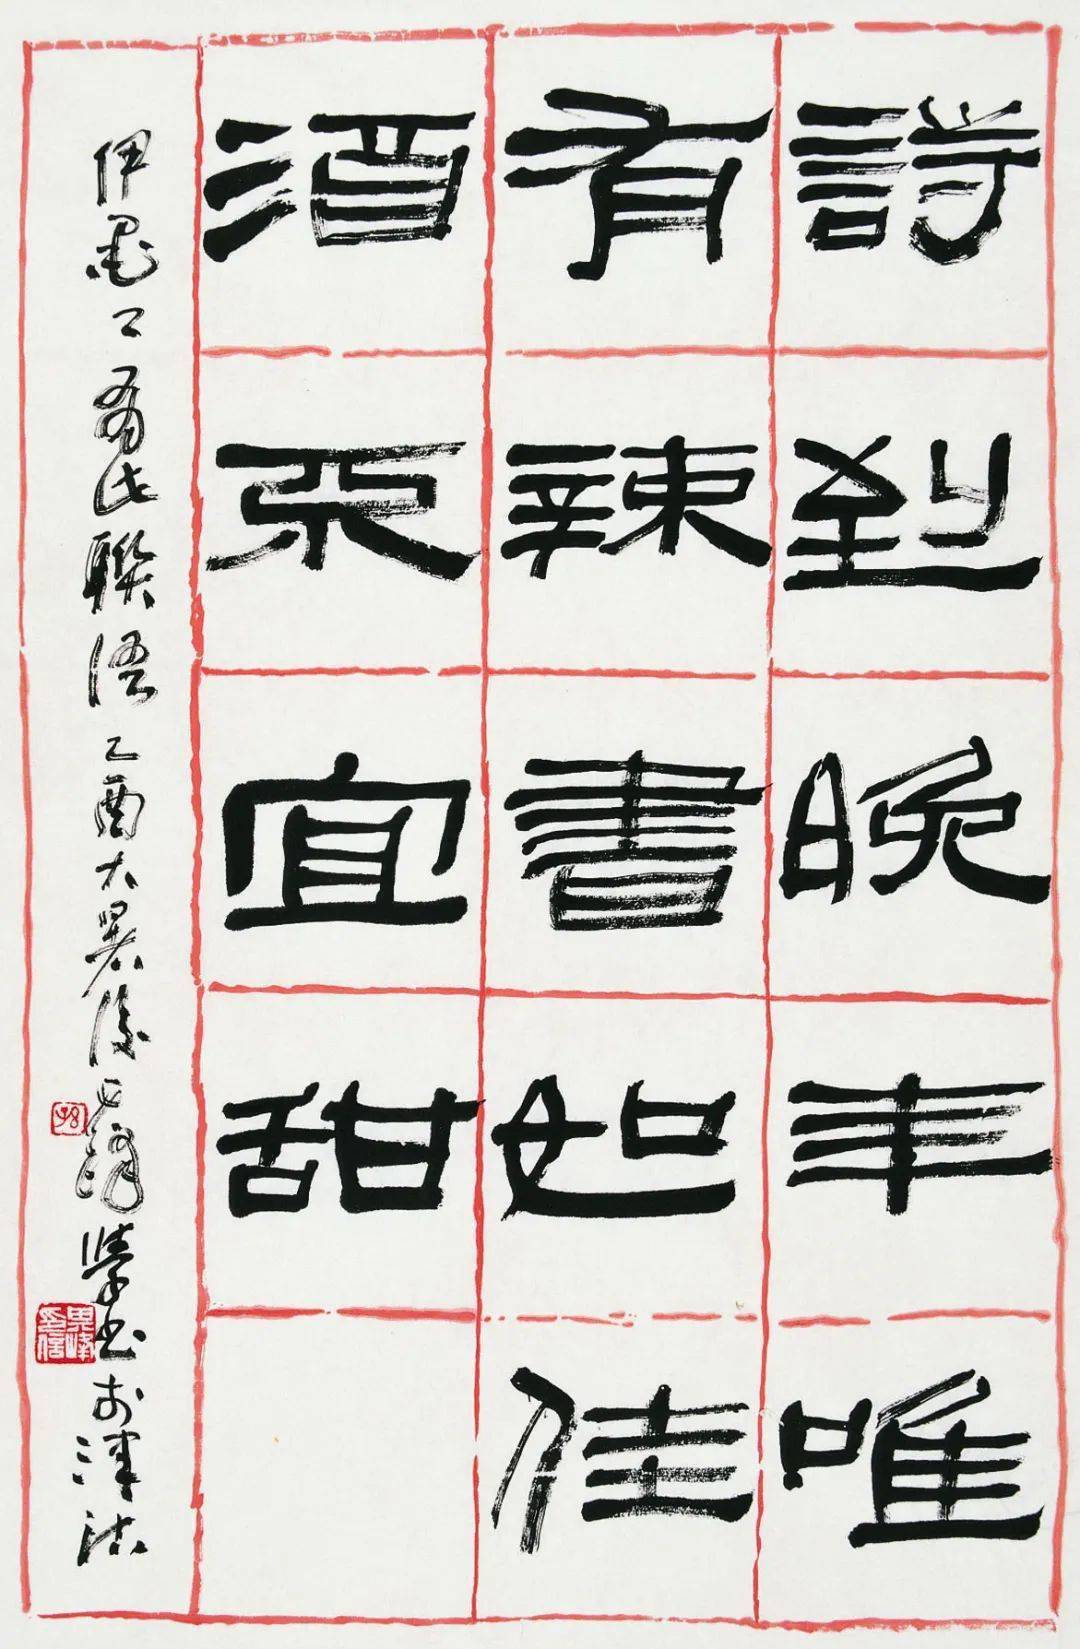 詩到晚年唯
有辣書如佳
酒不宜甜
伊墨公有此聯語 乙酉大暑後 峰學書於津沽